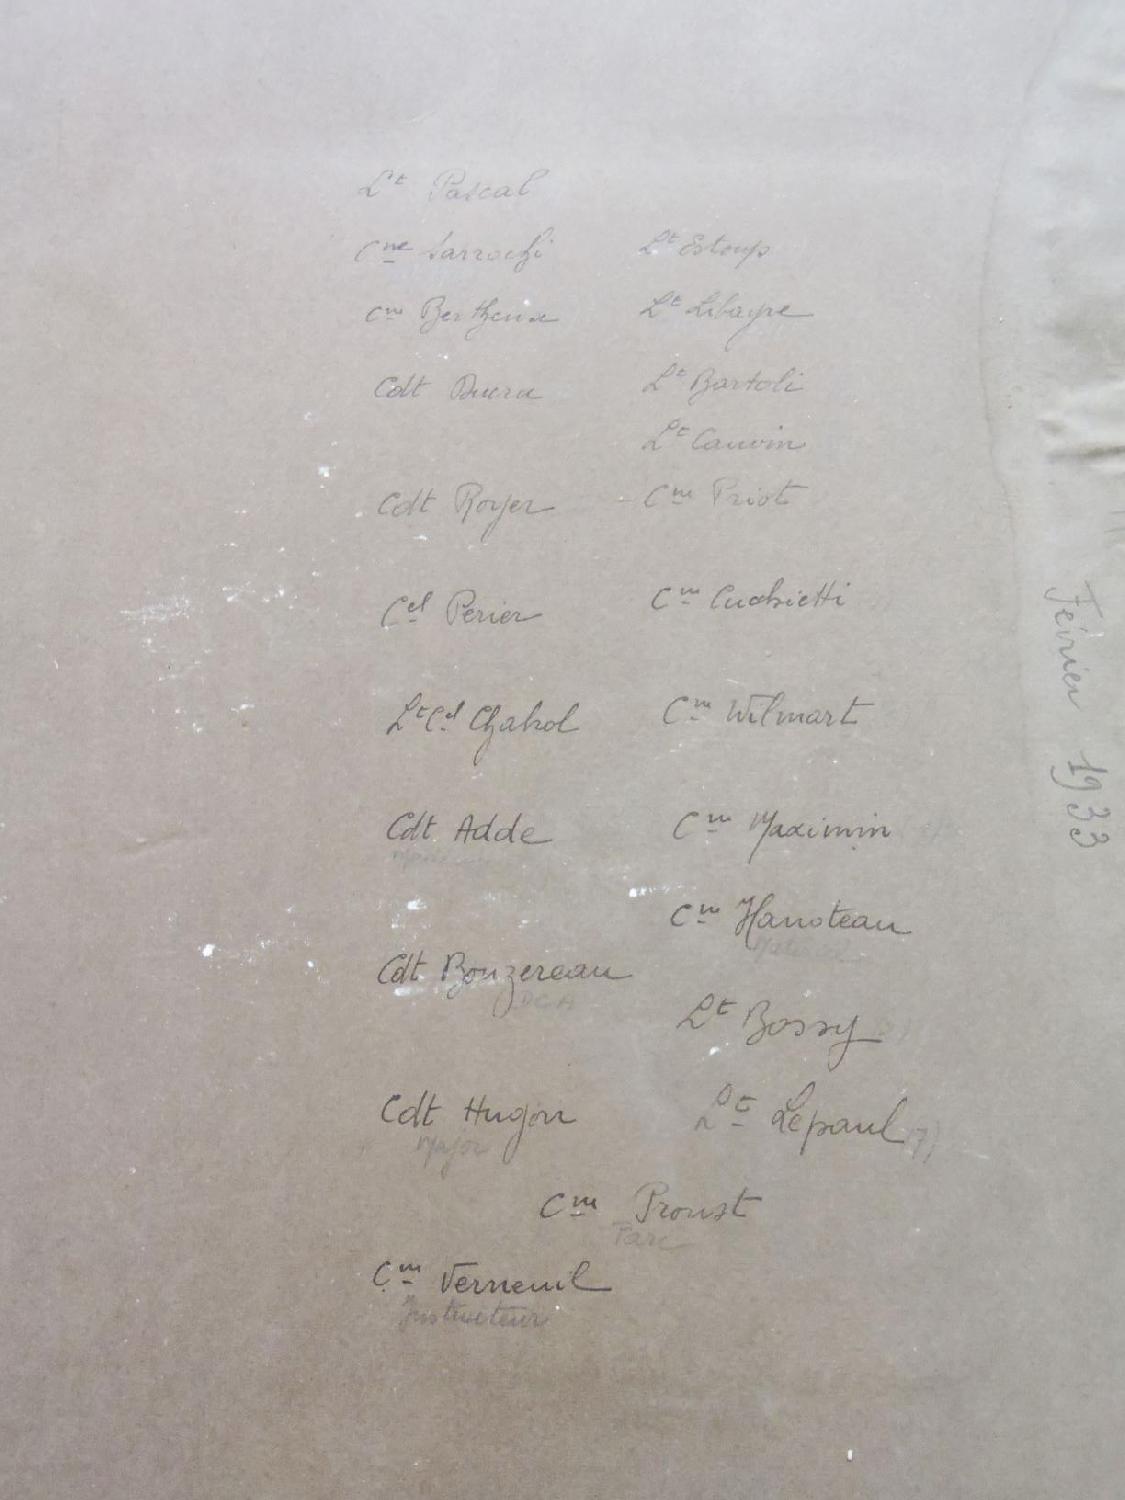 Lt Pascal
Cne Sarrochi Lt Estoup
Cne Bertheux Lt Libayre
Cdt Ducru Lt Bartoli
Lt Cauvin
Cdt Royer Cne Priot
Cel Perier Cne
Lt Cel Chabol Cne Wilmart
Cdt Adde Cne Maximin
Cne Hanoteau
Matériel
Cdt Bouzereau
DCA
Lt Bossy
Cdt Hugon Lt Lepaul (7)
Major
Cne Proust
Parc
Cne Verneuil
Instructeur
Février 1933